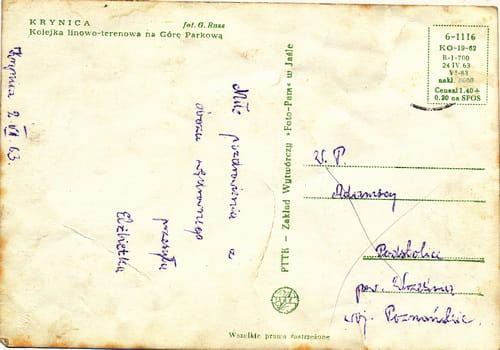 KRYNICA
fot. G. Russ
Kolejka linowo-terenowa na Górę Parkową
6-1116
KO-19-62
R-1-700
24 IV. 63
VI-63
nakł.
Cena zł 1.40+
0.20 na SFOS
2 VI 63.
Miłe pozdrowienia z
obozu
przesyła
Elżbietka
PTTK — Zakład Wytwórczy »Foto-Pam« w Jaśle
W. P
Adamscy
Podstolice
pow. Września
woj. Poznańskie.
Wszelkie prawa zastrzeżone